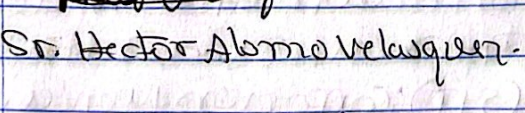 Sr. Hector Alomo Velasquez.